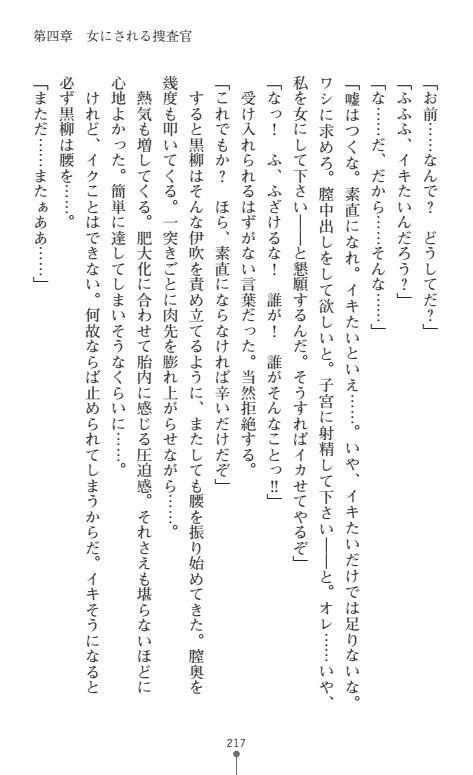 第四章　女にされる捜査官
「お前……なんで？　どうしてだ？」
「ふふふ、イキたいんだろう？」
「な……だ、だから……そんな……」
「嘘はつくな。素直になれ。イキたいといえ……。いや、イキたいだけでは足りないな。
ワシに求めろ。膣中出しをして欲しいと。子宮に射精して下さい――と。オレ……いや、
私を女にして下さい――と懇願するんだ。そうすればイカせてやるぞ」
「なっ！　ふ、ふざけるな！　誰が！　誰がそんなことっ!!」
　受け入れられるはずがない言葉だった。当然拒絶する。
「これでもか？　ほら、素直にならなければ辛いだけだぞ」
　すると黒柳はそんな伊吹を責め立てるように、またしても腰を振り始めてきた。膣奥を
幾度も叩いてくる。一突きごとに肉先を膨れ上がらせながら……。
　熱気も増してくる。肥大化に合わせて胎内に感じる圧迫感。それさえも堪らないほどに
心地よかった。簡単に達してしまいそうなくらいに……。
　けれど、イクことはできない。何故ならば止められてしまうからだ。イキそうになると
必ず黒柳は腰を……。
「まただ……またぁああ……」
217